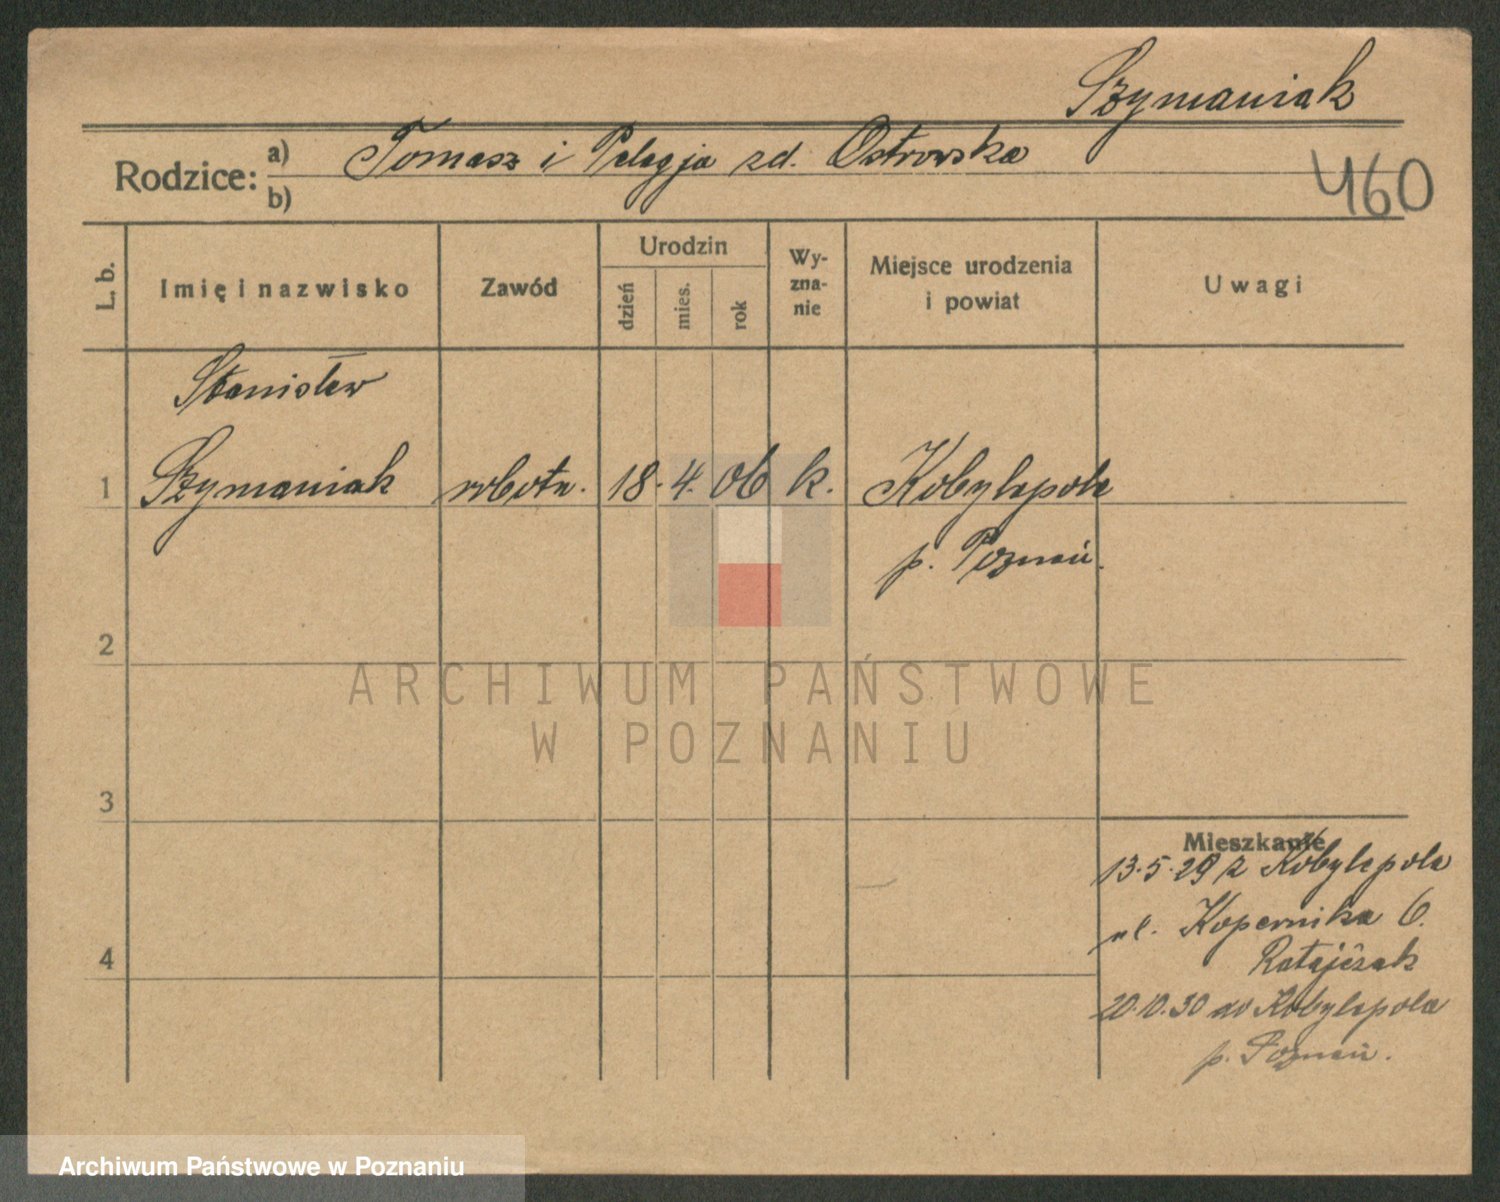 Szymaniak
Rodzice: a) Tomasz i Pelagja zd. Ostrowska
b)
460
L. b.
Imię i nazwisko
Zawód
Urodzin
dzień
mies.
rok
Wy-
zna-
nie
Miejsce urodzenia
i powiat
Uwagi
Stanisław
1 Szymaniak robotn. 18. 4. 06 k. Kobylepole
p. Poznań.
2
ARCHIWUM PAŃSTWOWE
W POZNANIU
3
Mieszkanie
13.5.29 z Kobylepola
ul. Kopernika 6.
4
Ratajczak
20.10.30 do Kobylepola
p. Poznań.
Archiwum Państwowe w Poznaniu